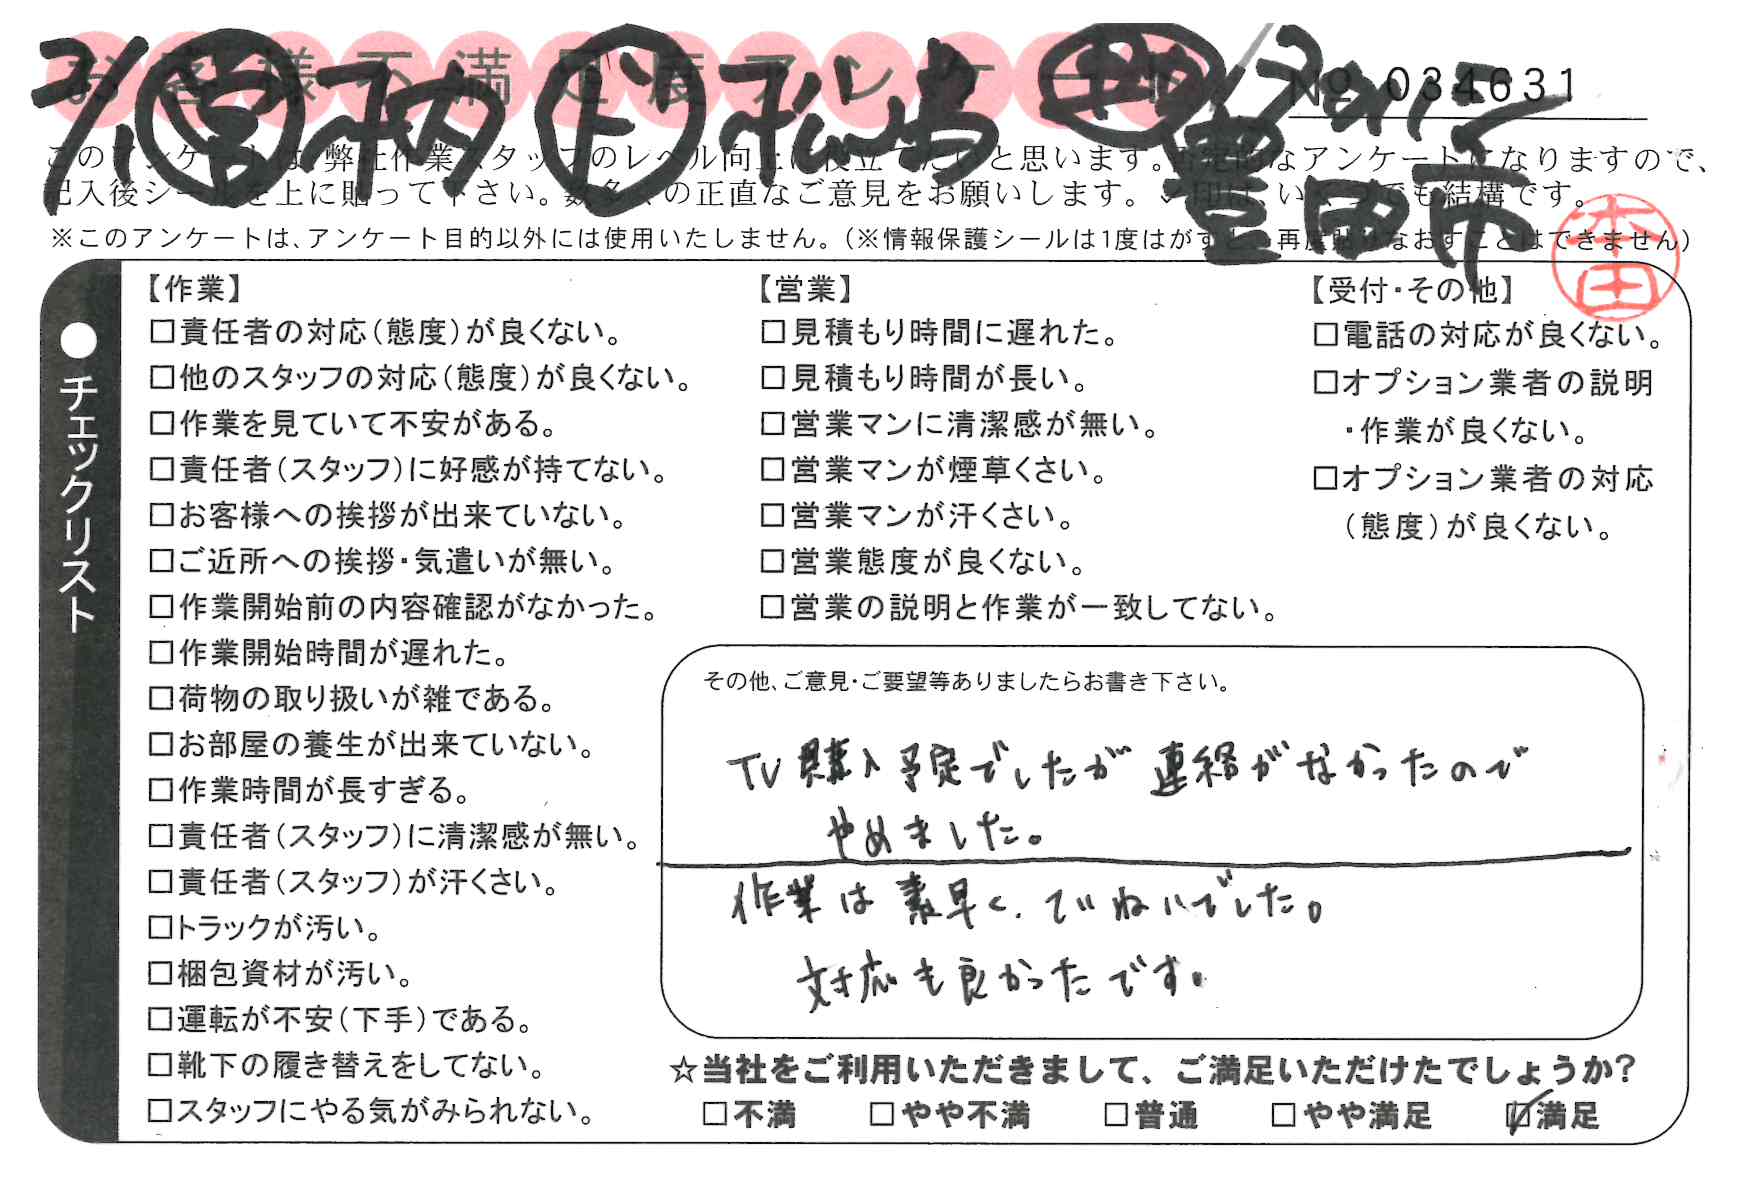 お客様不満足度アンケート
3/1 営 木内 ド 松嶌
No 034631
豊田市
このアンケートは、弊社作業スタッフのレベル向上に役立てたいと思います。否定的なアンケートになりますので、
記入後シールを上に貼って下さい。数多くの正直なご意見をお願いします。レ印は、いくつでも結構です。
※このアンケートは、アンケート目的以外には使用いたしません。（※情報保護シールは1度はがすと、再度貼りなおすことはできません）
本田
●チェックリスト
【作業】
□責任者の対応（態度）が良くない。
□他のスタッフの対応（態度）が良くない。
□作業を見ていて不安がある。
□責任者（スタッフ）に好感が持てない。
□お客様への挨拶が出来ていない。
□ご近所への挨拶・気遣いが無い。
□作業開始前の内容確認がなかった。
□作業開始時間が遅れた。
□荷物の取り扱いが雑である。
□お部屋の養生が出来ていない。
□作業時間が長すぎる。
□責任者（スタッフ）に清潔感が無い。
□責任者（スタッフ）が汗くさい。
□トラックが汚い。
□梱包資材が汚い。
□運転が不安（下手）である。
□靴下の履き替えをしてない。
□スタッフにやる気がみられない。
【営業】
□見積もり時間に遅れた。
□見積もり時間が長い。
□営業マンに清潔感が無い。
□営業マンが煙草くさい。
□営業マンが汗くさい。
□営業態度が良くない。
□営業の説明と作業が一致してない。
【受付・その他】
□電話の対応が良くない。
□オプション業者の説明
・作業が良くない。
□オプション業者の対応
（態度）が良くない。
その他、ご意見・ご要望等ありましたらお書き下さい。
TV購入予定でしたが連絡がなかったので
やめました。
作業は素早く、ていねいでした。
対応も良かったです。
☆当社をご利用いただきまして、ご満足いただけたでしょうか?
□不満 □やや不満 □普通 □やや満足 ☑満足